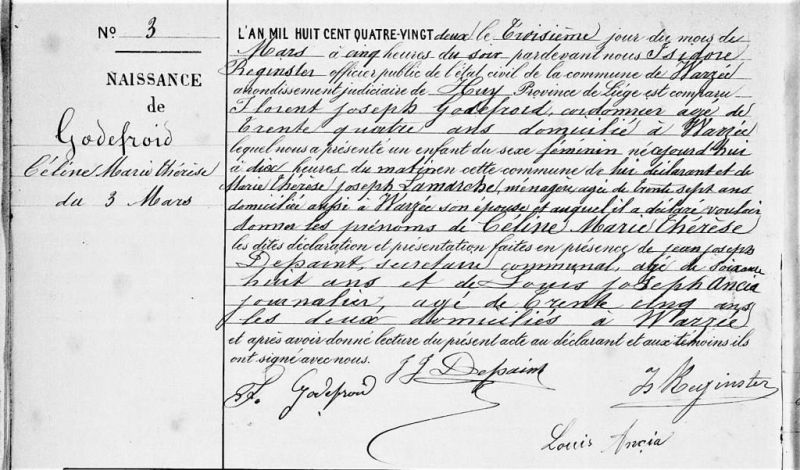 N° 3
NAISSANCE
de
Godefroid
Céline Marie Thérèse
du 3 Mars
L'AN MIL HUIT CENT QUATRE-VINGT deux le Troisième jour du mois de
Mars à cinq heures du soir pardevant nous Isidore
Reginster officier public de l'état civil de la commune de Warzée
arrondissement judiciaire de Huy Province de Liége est comparu
Florent Joseph Godefroid, cordonnier agé de
Trente quatre ans domicilié à Warzée
lequel nous a présenté un enfant du sexe féminin né cejourd'hui
à dix heures du matin en cette commune de lui déclarant et de
Marie Thérèse Joseph Lamarche, ménagère, agée de trente sept ans
domiciliée aussi à Warzée son épouse et auquel il a déclaré vouloir
donner les prénoms de Céline Marie Thérèse
les dites déclaration et présentation faites en présence de jean joseph
Depaint, secrétaire communal, agé de Soixante
huit ans et de Louis joseph Ancia
journalier agé de Trente cinq ans
les deux domiciliés à Warzée
et après avoir donné lecture du présent acte au déclarant et aux témoins ils
ont signé avec nous.
F. Godefroid
JJ Depaint
Is Reginster
Louis Ancia